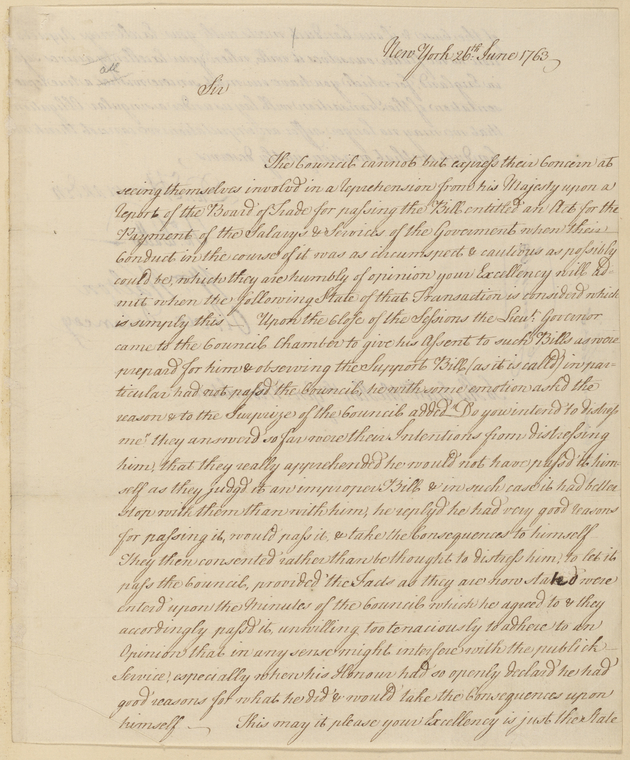 New York 26th June 1763
all
Sir
The Council cannot but express their Concern at
seeing themselves involv'd in a Reprehension from his Majesty upon a
Report of the Board of Trade for passing the Bill entitled an Act for the
Payment of the Salarys & Services of the Goverment when their
Conduct in the course of it was as circumspect & cautious as possibly
could be, which they are humbly of opinion your Excellency will Ad-
mit when the following State of that Transaction is considerd which
is simply this. Upon the Close of the Sessions the Lieut. Govenor
came to the Council Chamber to give his Assent to such Bills as were
prepard for him & observing the Support Bill (as it is calld) in par-
ticular had not pass'd the Council, he with some emotion asked the
reason & to the Surprize of the Council added "Do you intend to distress
me" they answerd so far were their Intentions from distressing
him, that they really apprehended he would not have pass'd it him-
self as they judg'd it an improper Bill & in such case it had better
stop with them than with him, he reply'd he had very good reasons
for passing it, would pass it, & take the Consequences to himself
They then consented rather than be thought to distress him, to let it
pass the Council, provided the Facts as they are now stated were
enterd upon the Minutes of the Council which he agreed to & they
accordingly pass'd it, unwilling too tenaciously to adhere to an
Opinion that in any sense might interfere with the publick
Service, especially when his Honour had so openly declard he had
good reasons for what he did & would take the Consequences upon
himself. This may it please your Excellency is just the State